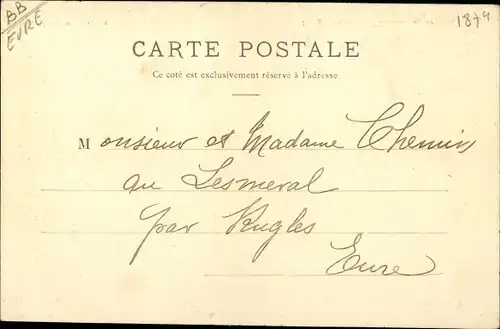 BB
EURE
1874
CARTE POSTALE
Ce coté est exclusivement réservé à l'adresse
Monsieur et Madame Chemin
au Lesmeral
par Rugles
Eure